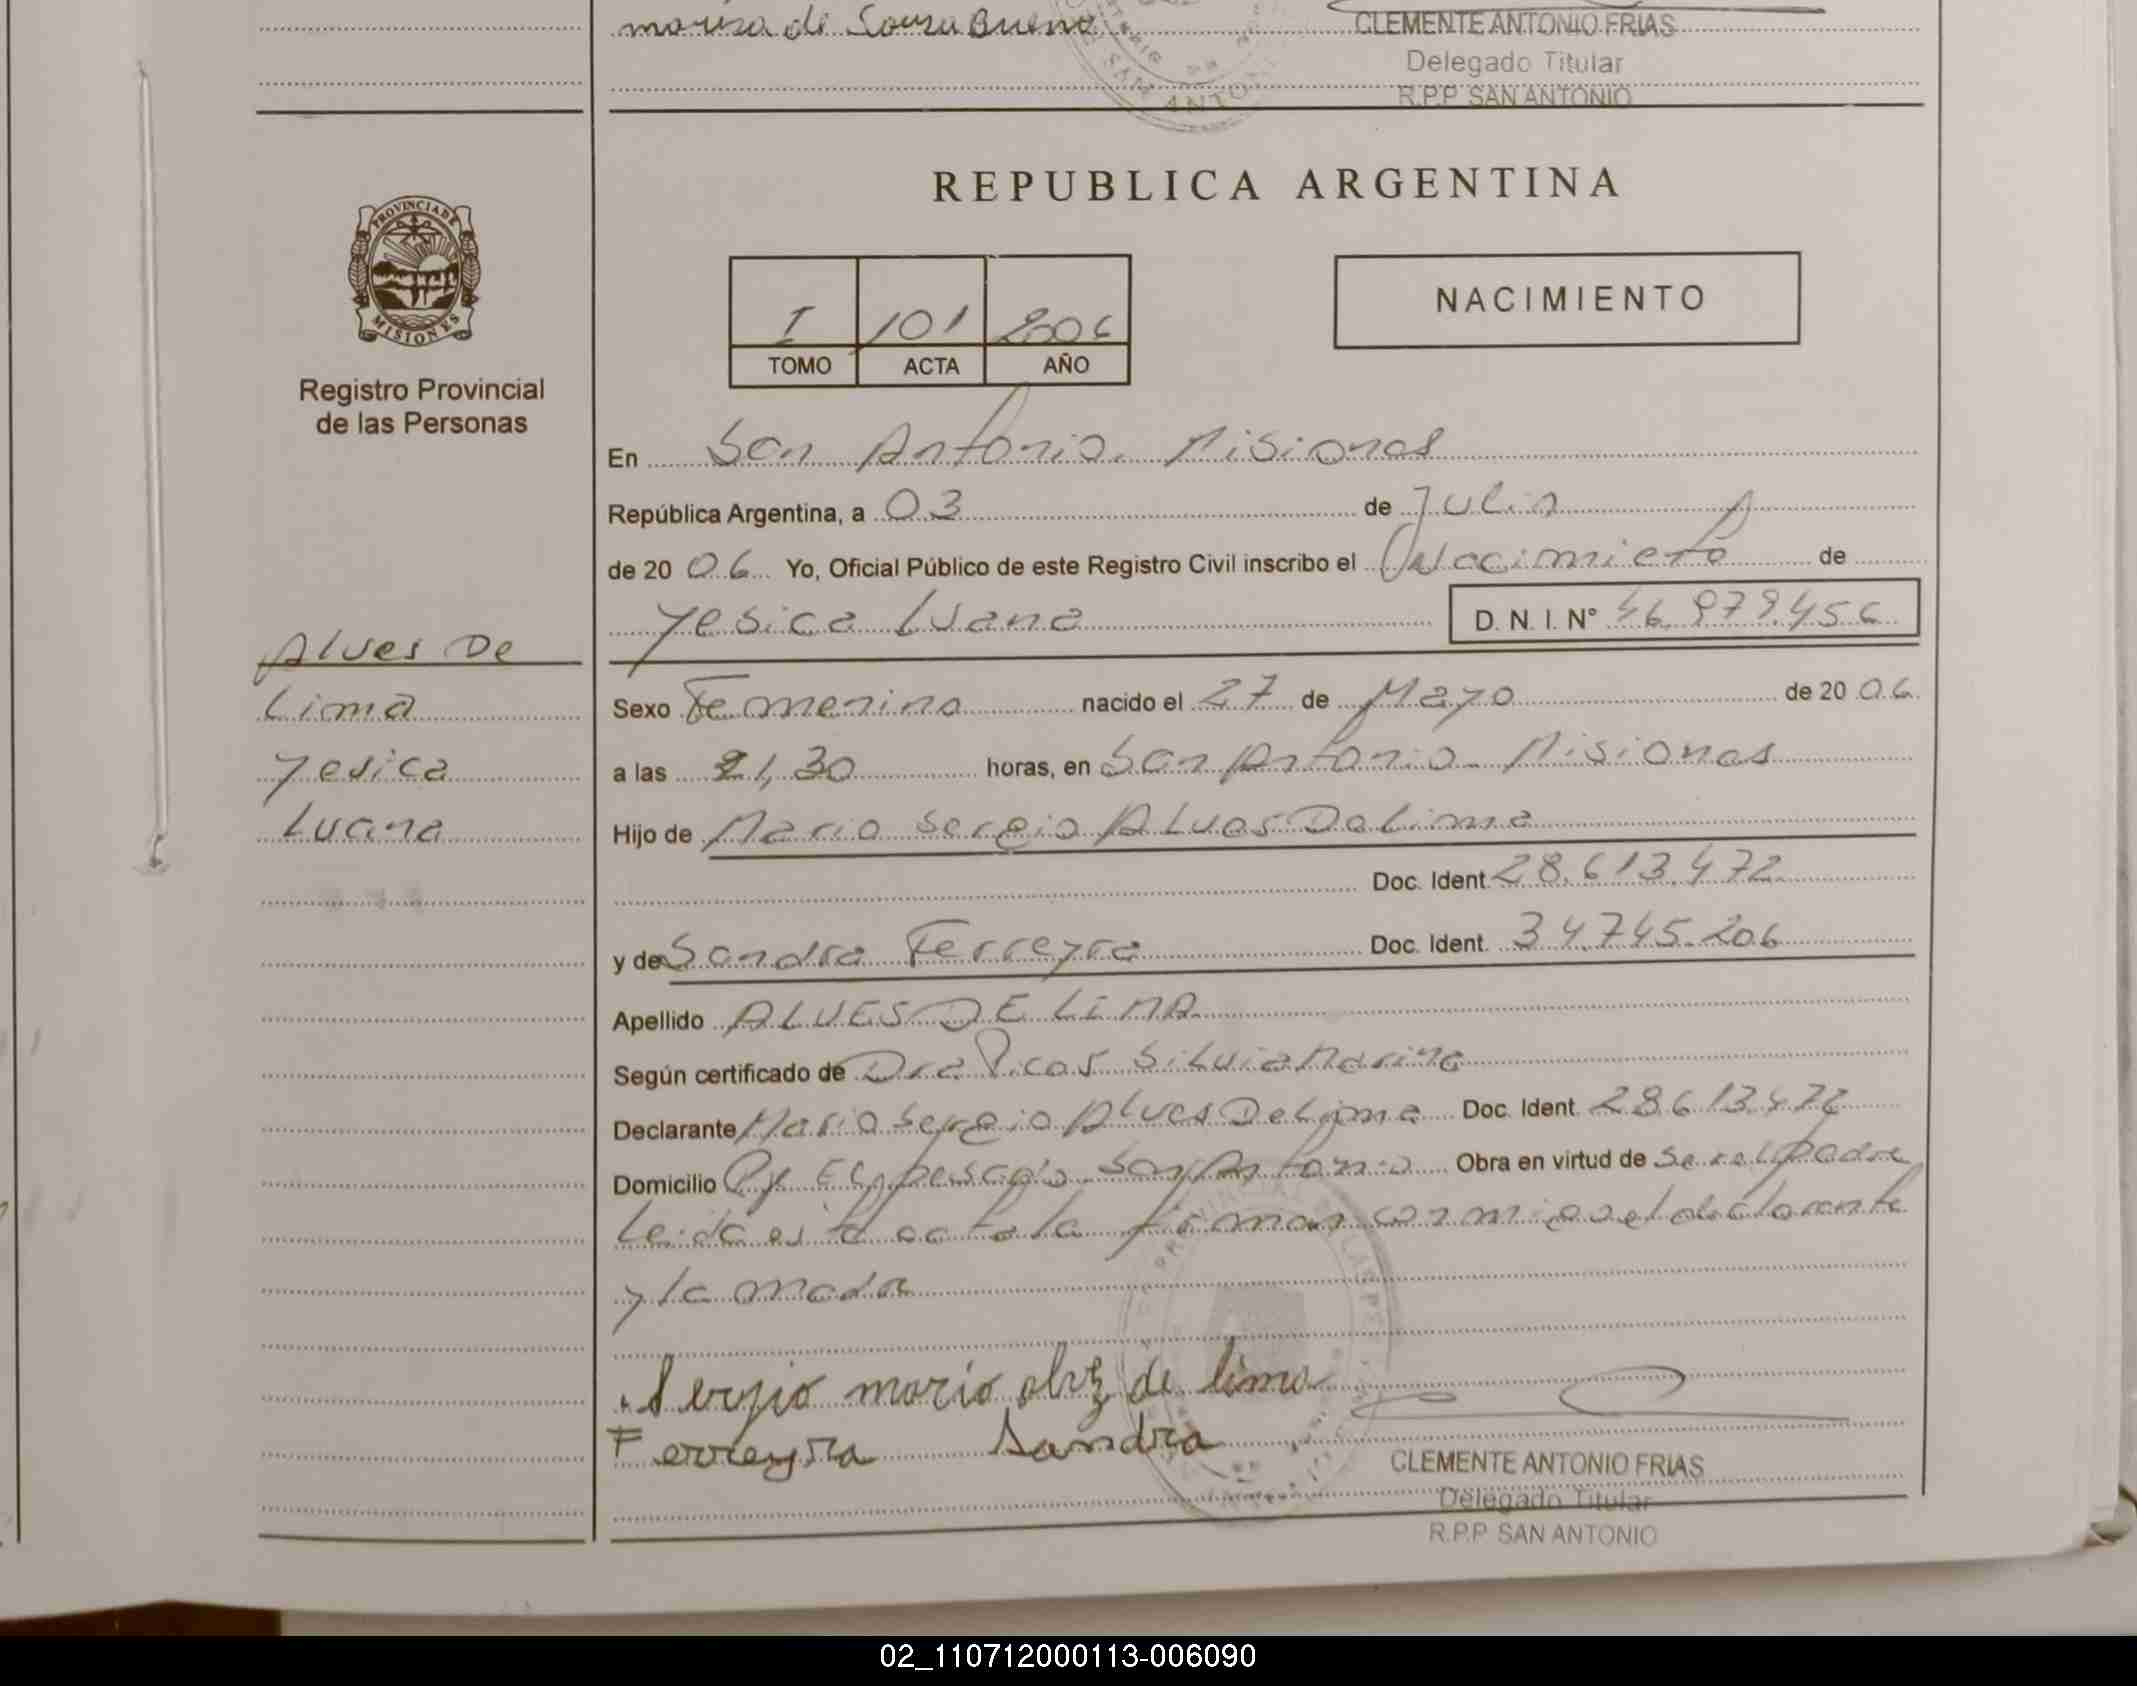 marisa de Souza Bueno
CLEMENTE ANTONIO FRIAS
Delegado Titular
R.P.P SAN ANTONIO
SAN ANTONIO
REPUBLICA ARGENTINA
PROVINCIA DE
MISIONES
Registro Provincial
de las Personas
I 101 2006
TOMO ACTA AÑO
NACIMIENTO
En San Antonio. Misiones
República Argentina, a 03 de Julio
de 2006 Yo, Oficial Público de este Registro Civil inscribo el Nacimieto de
Yesica Luana D. N. I. N° 46.979.456
Alves De
Lima
Yesica
Luana
Sexo Femenino nacido el 27 de Mayo de 2006
a las 21,30 horas, en San Antonio. Misiones
Hijo de Mario Sergio ALves De Lima
Doc. Ident. 28.613.472
y de Sandra Ferreyra Doc. Ident. 34.745.206
Apellido ALVES DE LIMA
Según certificado de Dra Picos Silvia Marina
Declarante Mario Sergio Alves De Lima Doc. Ident. 28613472
Domicilio Pje El pescado San Antonio Obra en virtud de Ser el padre
Leida esta acta la firman conmigo el declarante
y la madre
Sergio mario alvz de lima
Ferreyra Sandra
CLEMENTE ANTONIO FRIAS
Delegado Titular
R.P.P SAN ANTONIO
02_110712000113-006090